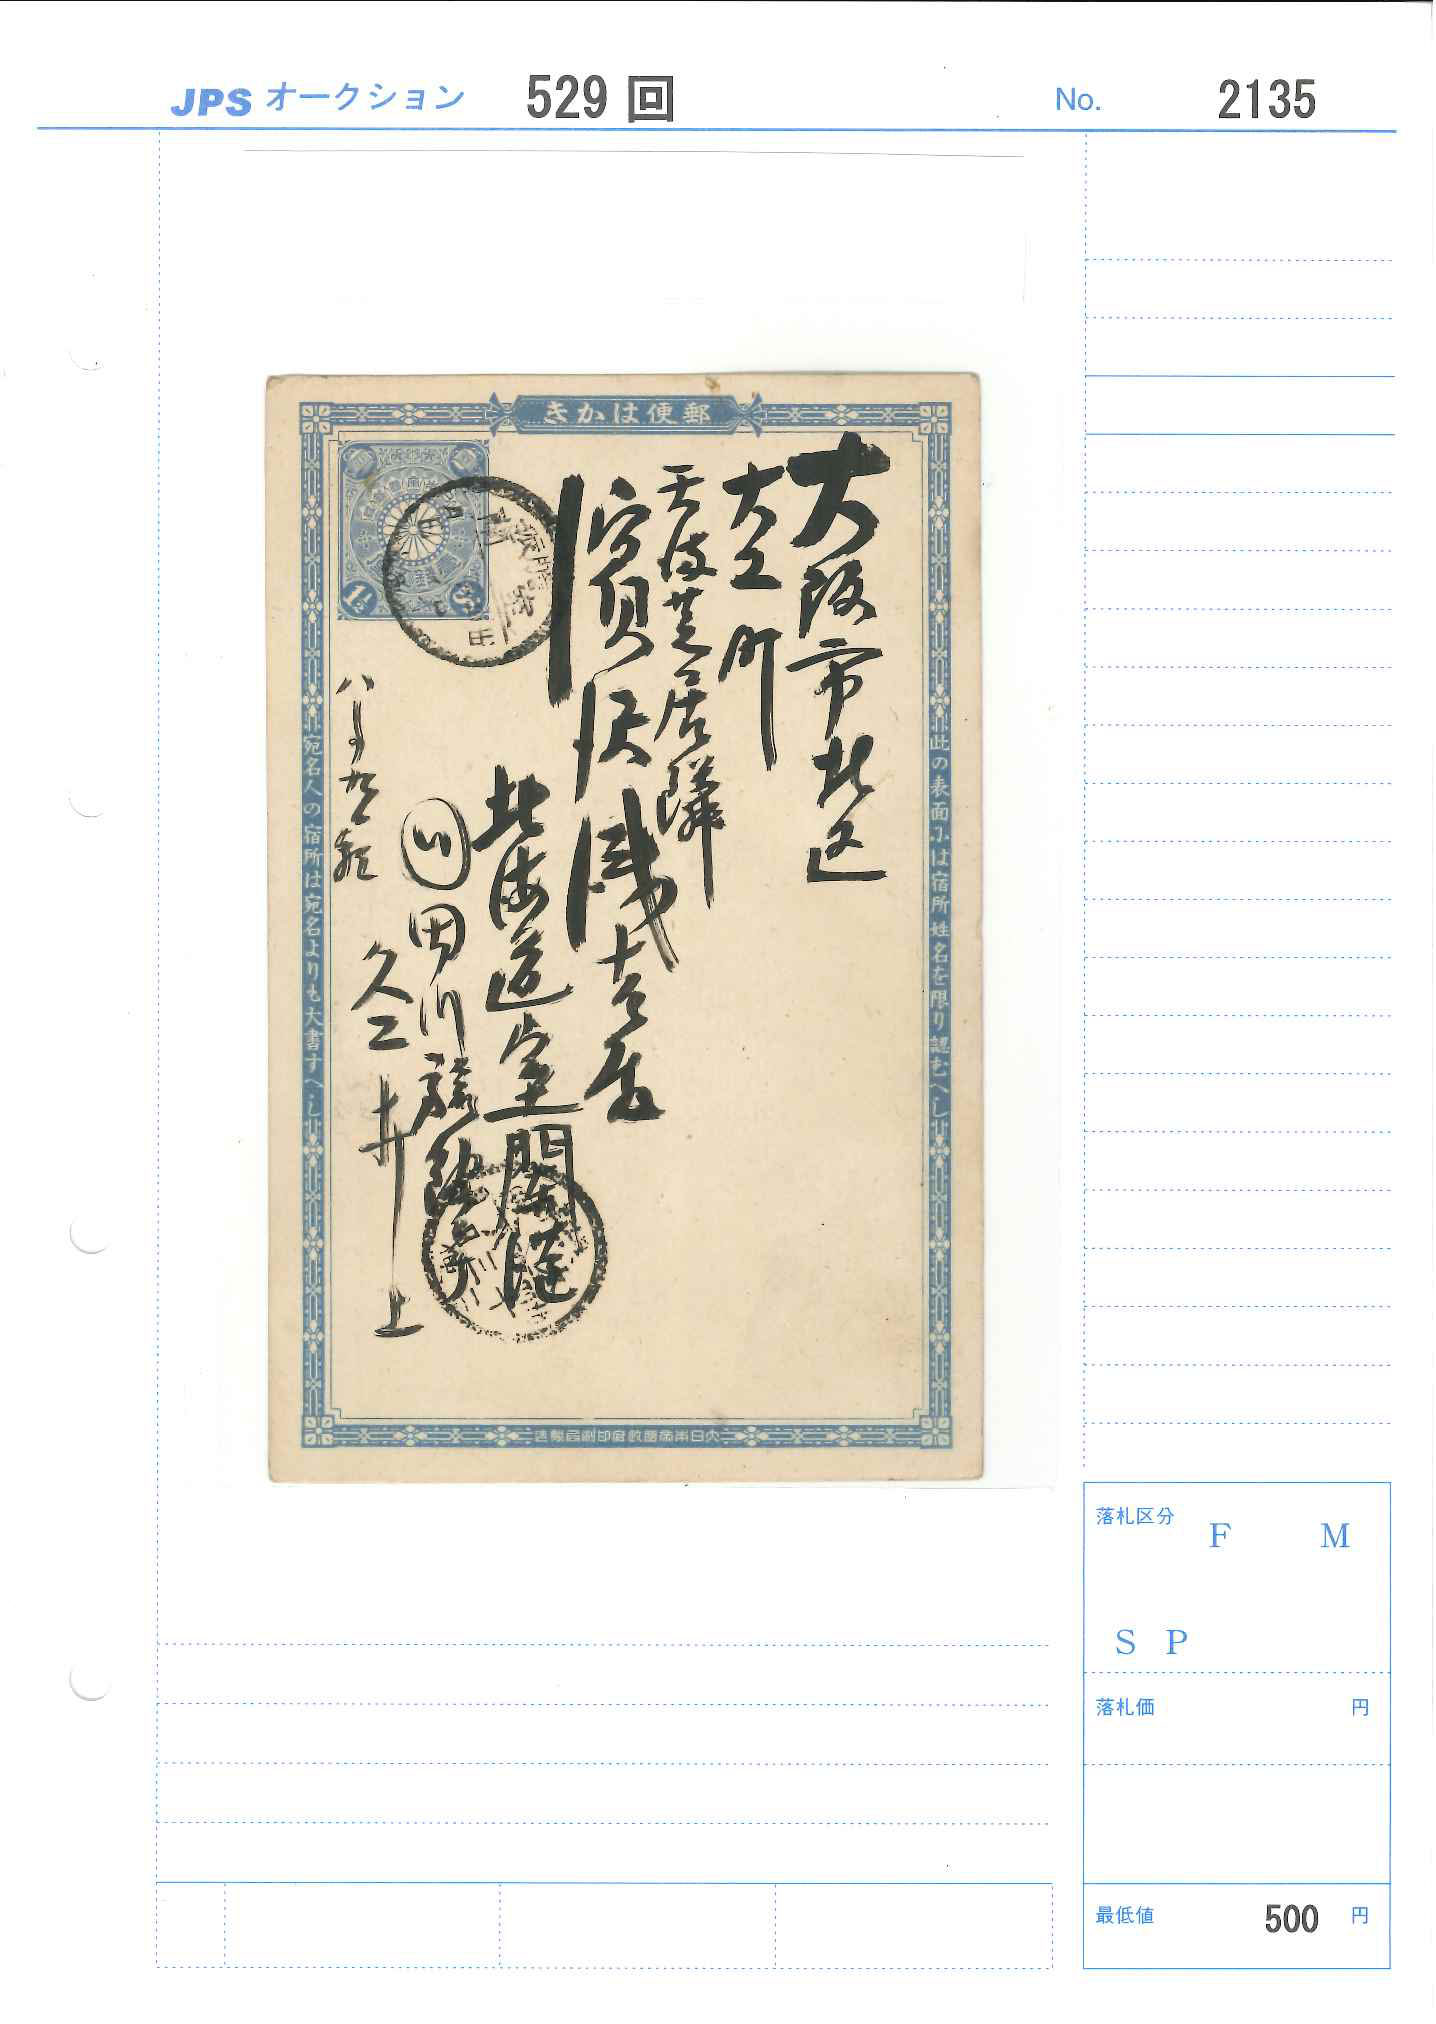 JPS オークション 529 回 No. 2135
郵便はかき
1½ Sn.
此の表面には宿所姓名を限り認むへし
宛名人の宿所は宛名よりも大書すへし
大阪市北区
大工町
天満芝居隣
北海道室蘭港
田川旅館
久二井上
大日本帝國政府印刷局製造
落札区分 F M
S P
落札価 円
最低値 500 円